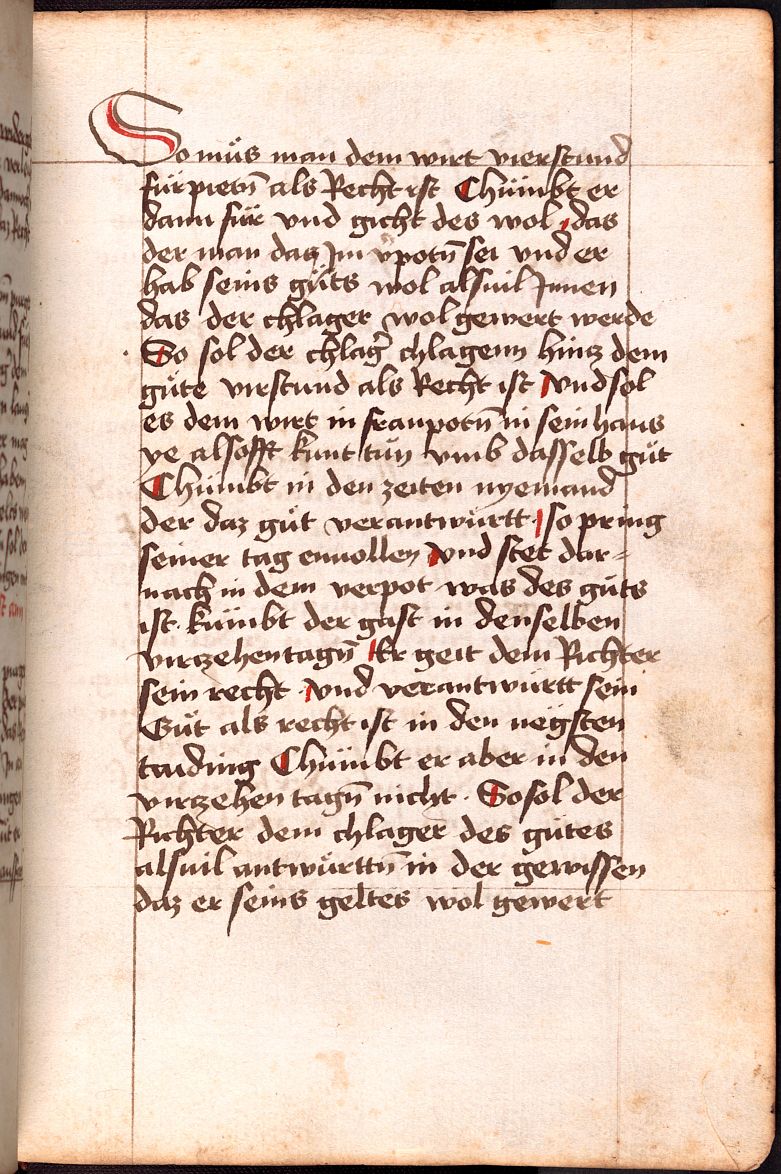 So müs man dem wirt vierstund
für pietñ als Recht ist Chümbt er
dann für vnd gicht des wol das
der man daz Im vpotñ sei vnd er
hab seins güts wol alsuil Innen
das der chlager wol gewert werde
So sol der chlagr̄ chlagenn hintz dem
güte virstund als Recht ist vnd sol
es dem wirt in franpotñ in sein haus
ye alsofft kunt tün vmb dasselb güt
Chümbt in den zeiten nyemand
der daz güt verantwürtt so pring
seiner tag enuollen vnd stet dar=
nach in dem verpot was des güts
ist kümbt der gast in denselben
virczehen tagñ Er geit dem Richter
sein recht vnd verantwürtt sein
Güt als recht ist in den negsten
taiding Chümbt er aber in den
virczehen tagñ nicht. So sol der
Richter dem chlager des gütes
alsuil antwürttñ in der gewissen
daz er seins geltes wol gewert